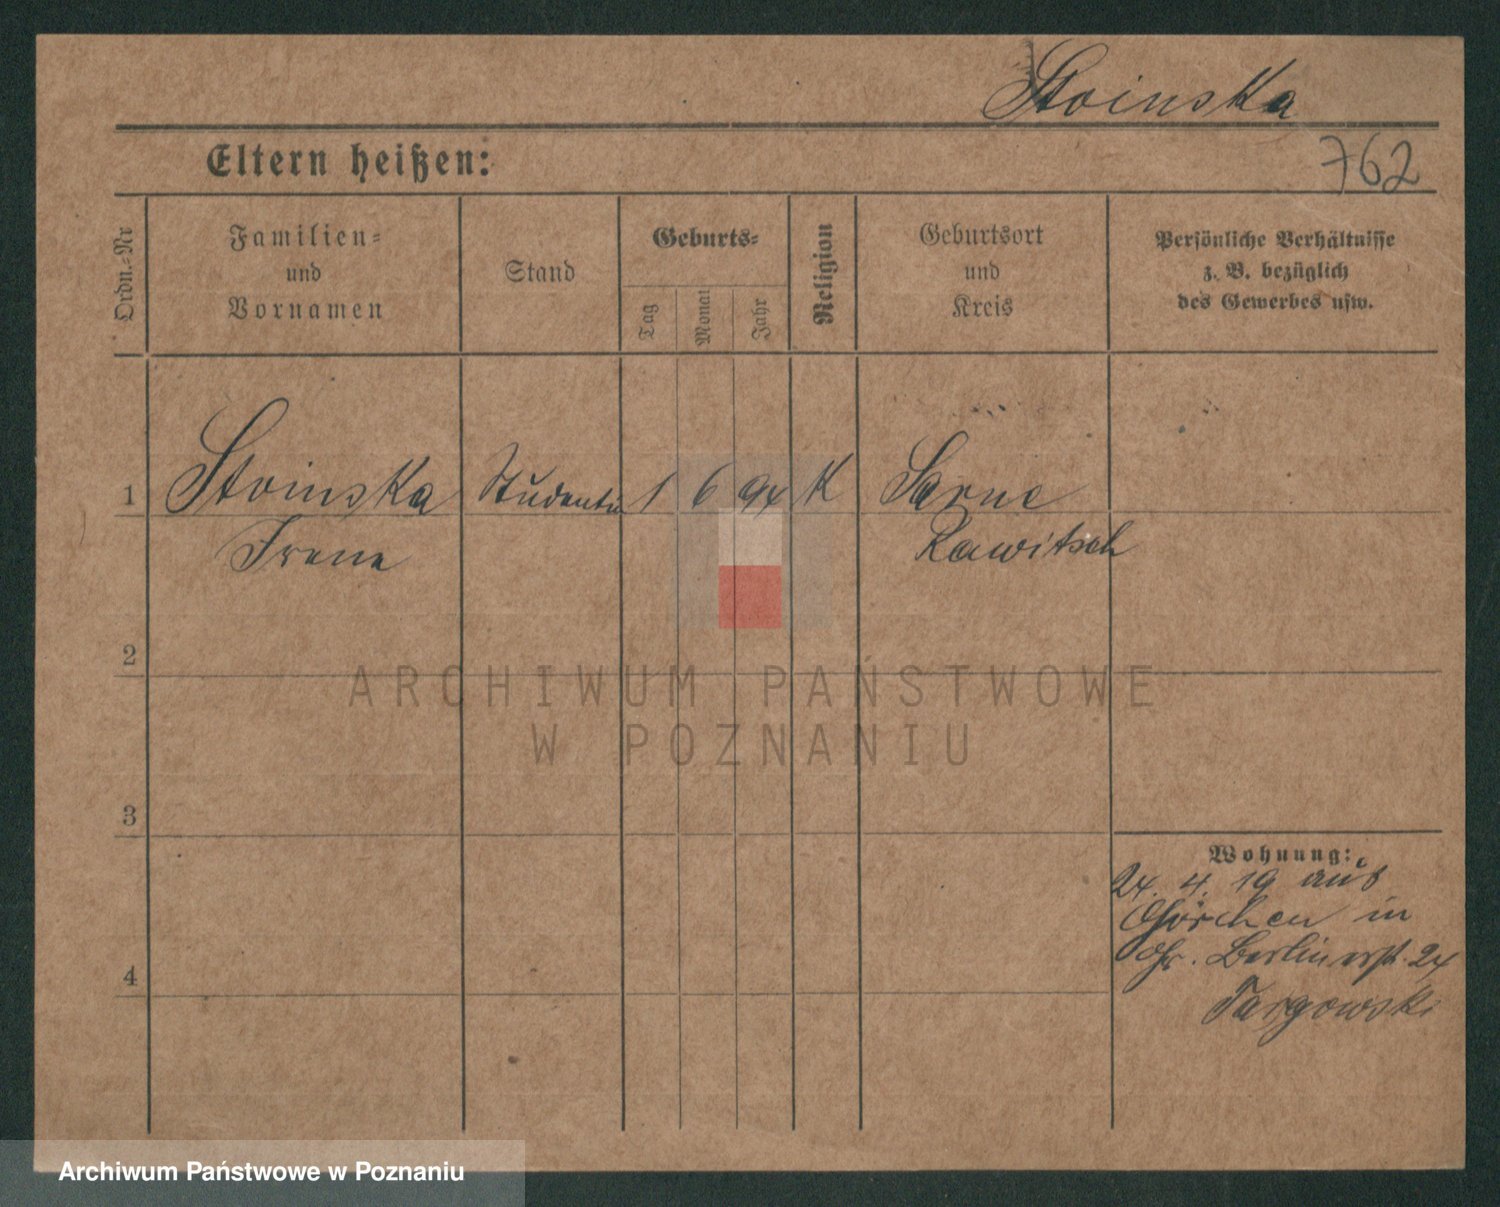 Stoinska
Eltern heißen:
762
Ordn.-Nr
Familien-
und
Vornamen
Stand
Geburts-
Tag
Monat
Jahr
Religion
Geburtsort
und
Kreis
Persönliche Verhältnisse
z. B. bezüglich
des Gewerbes usw.
1
Stoinska
Irene
Studentin
1
6
94
K
Sarne
Rawitsch
2
3
4
Wohnung:
24. 4. 19 aus
Görchen in
Gr. Berlinerst. 24
Targowski
ARCHIWUM PAŃSTWOWE
W POZNANIU
Archiwum Państwowe w Poznaniu